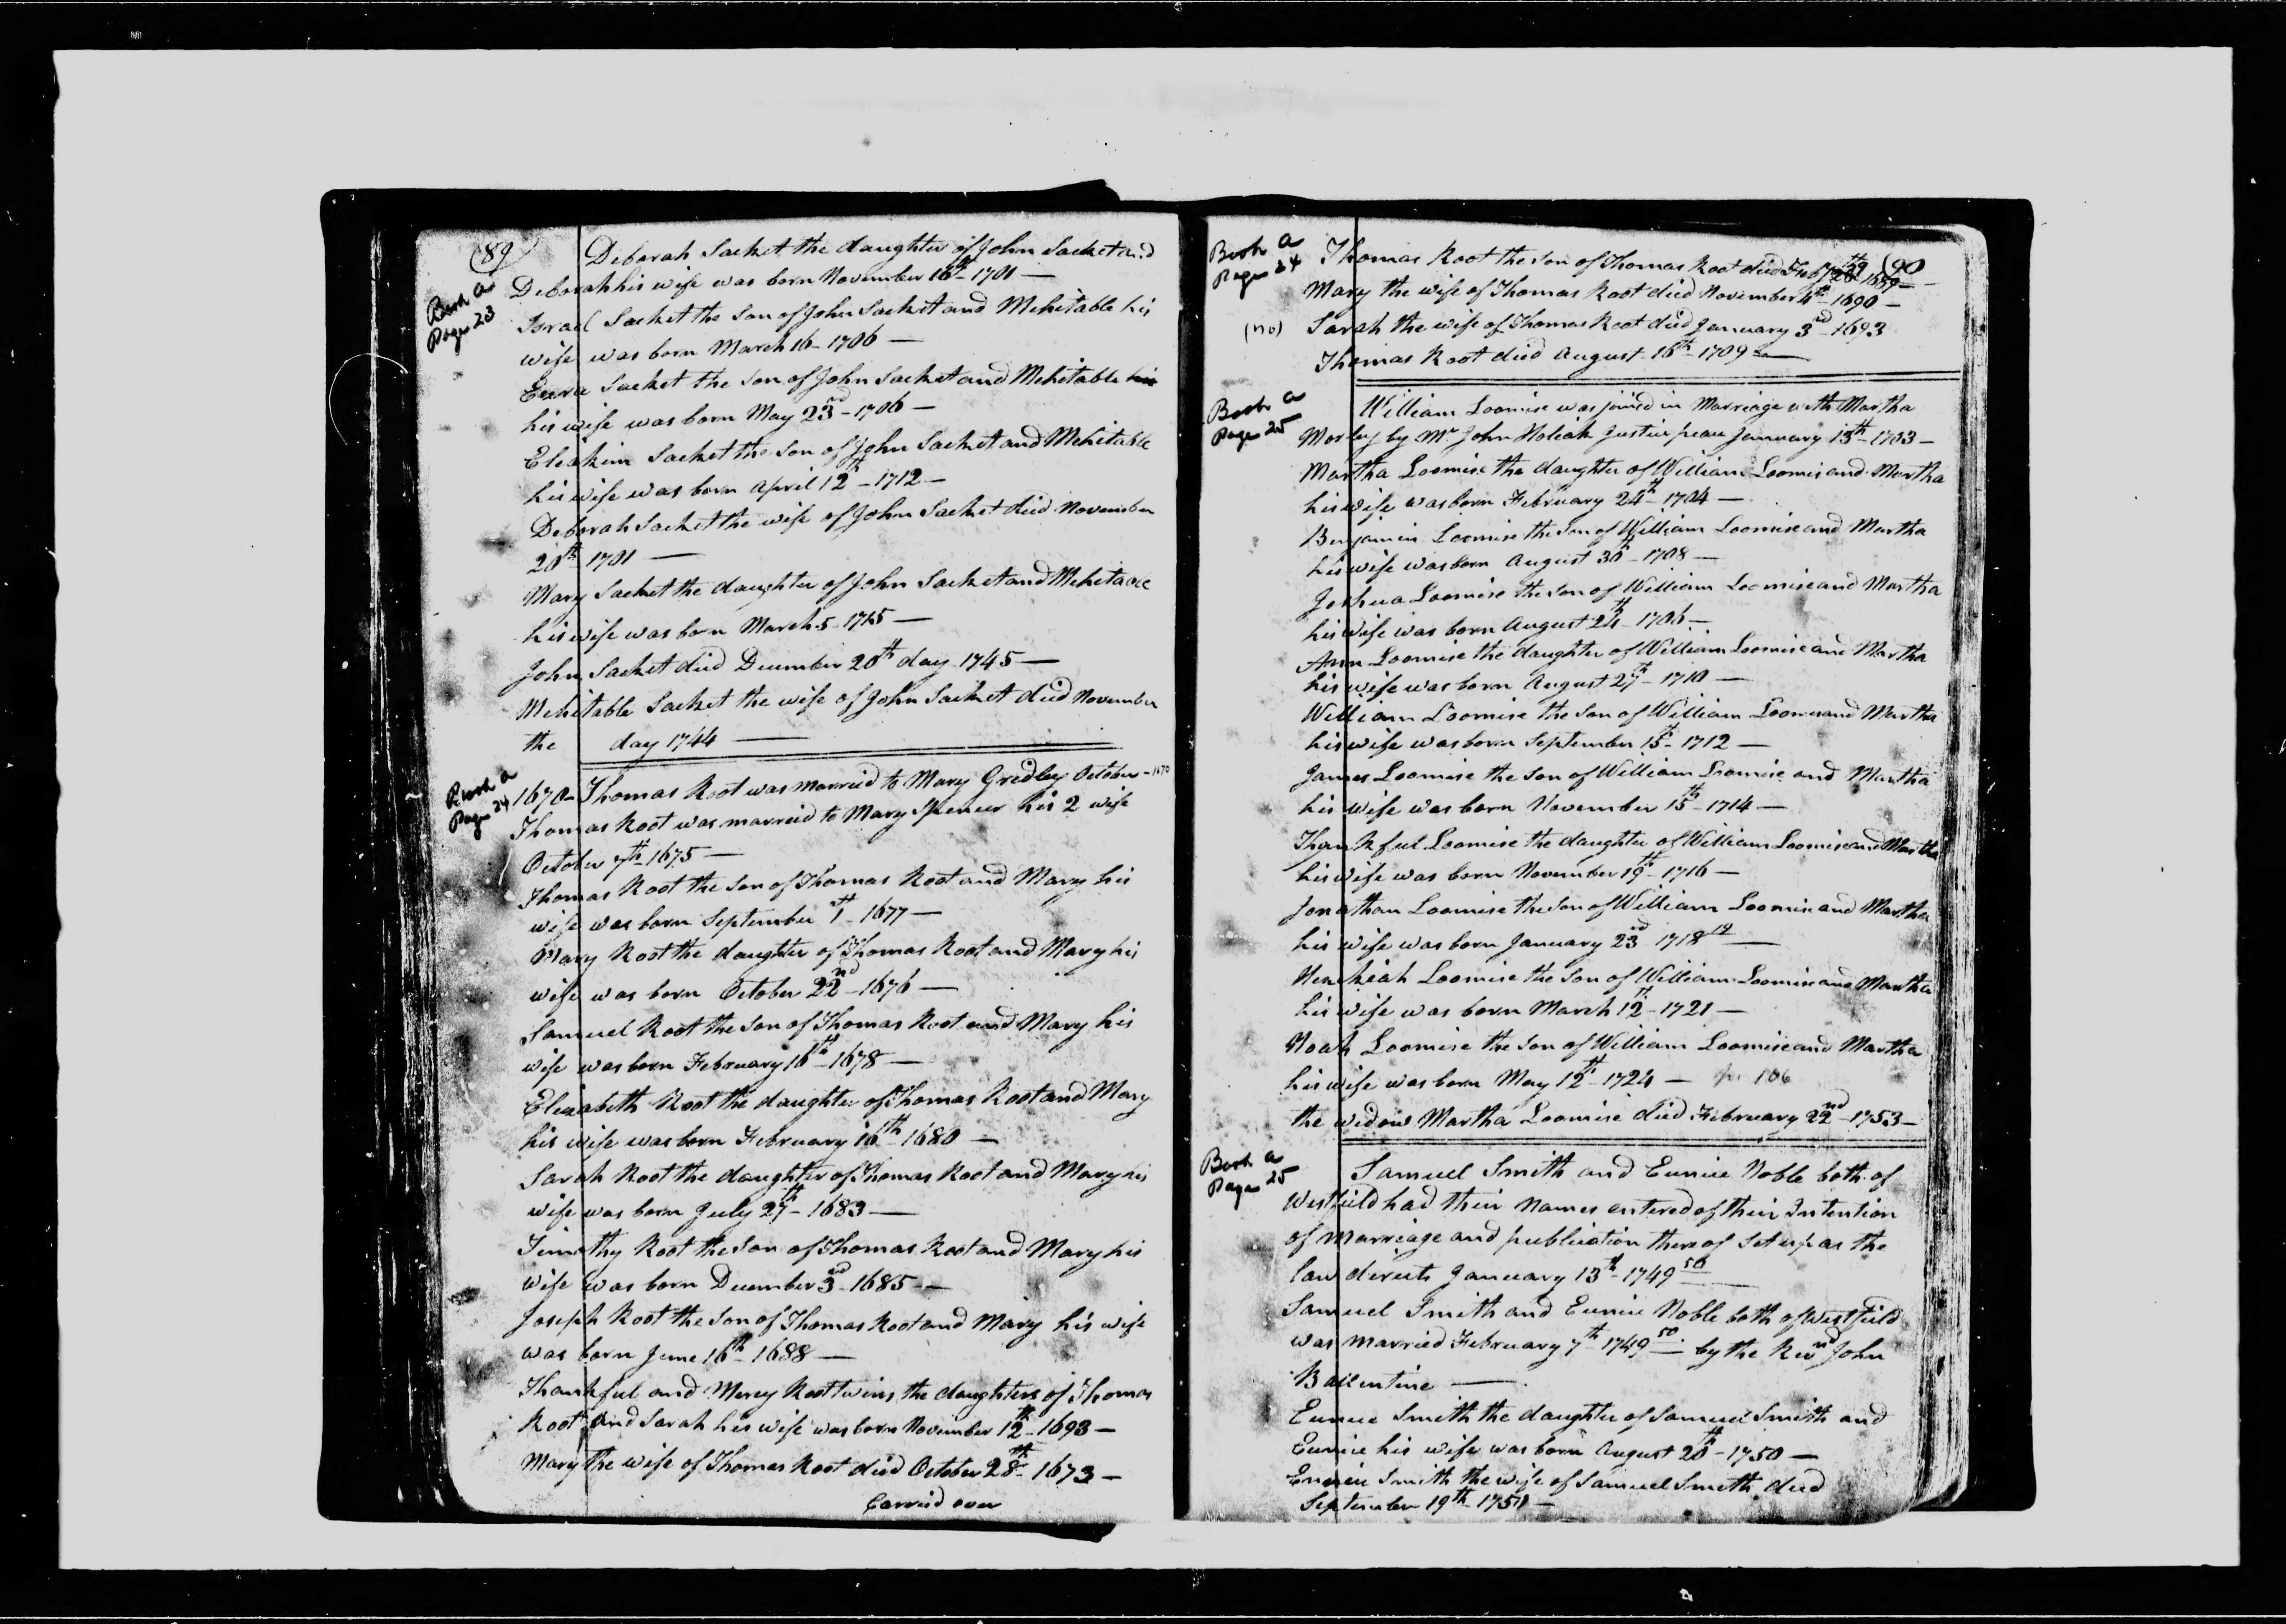 (89)
Book a
Page 23
Deborah Sacket the daughter of John Sacket and
Deborah his wife was born November 16th 1701 —
Israel Sacket the Son of John Sacket and Mehitable his
wife was born March 16 - 1706 —
Sacket the Son of John Sacket and Mehitable his
his wife was born May 23rd - 1706 —
Eliakim Sacket the Son of John Sacket and Mehitable
his wife was born April 12th - 1712 —
Deborah Sacket the wife of John Sacket died November
20th 1701 —
Mary Sacket the daughter of John Sacket and Mehitable
his wife was born March 5 - 1715 —
John Sacket died December 20th day 1745 —
Mehitable Sacket the wife of John Sacket died November
the day 1744 —
Book a
Page 24
1670 - Thomas Root was married to Mary Gridley October - 1670
Thomas Root was married to Mary Spencer his 2 wife
October 7th 1675 —
Thomas Root the Son of Thomas Root and Mary his
wife was born September 1th - 1677 —
Mary Root the daughter of Thomas Root and Mary his
wife was born October 22nd - 1676 —
Samuel Root the Son of Thomas Root and Mary his
wife was born February 16th - 1678 —
Elizabeth Root the daughter of Thomas Root and Mary
his wife was born February 16th 1680 —
Sarah Root the daughter of Thomas Root and Mary his
wife was born July 27th - 1683 —
Timothy Root the Son of Thomas Root and Mary his
wife was born December 3rd - 1685 —
Joseph Root the Son of Thomas Root and Mary his wife
was born June 16th - 1688 —
Thankful and Mercy Root twins the daughters of Thomas
Root and Sarah his wife was born November 12th - 1693 —
Mary the wife of Thomas Root died October 28th - 1673 —
Carried over
(90
Book a
Page 24
Thomas Root the Son of Thomas Root died 1689 —
Mary the wife of Thomas Root died November 4th - 1690 —
(no) Sarah the wife of Thomas Root died January 3rd - 1693
Thomas Root died August 16th - 1709 —
Book a
Page 25
William Loomise was joined in Marriage with Martha
Morley by Mr John Holiok Justice peace January 13th - 1703 —
Martha Loomise the daughter of William Loomis and Martha
his wife was born February 24th - 1704 —
Benjamin Loomise the Son of William Loomise and Martha
his wife was born August 30th - 1708 —
Joshua Loomise the Son of William Loomise and Martha
his wife was born August 24th 1706 —
Ann Loomise the daughter of William Loomise and Martha
his wife was born August 27th - 1710 —
William Loomise the Son of William Loomis and Martha
his wife was born September 15th - 1712 —
James Loomise the Son of William Loomise and Martha
his wife was born November 15th - 1714 —
Thankful Loomise the daughter of William Loomise and Martha
his wife was born November 19th - 1716 —
Jonathan Loomise the Son of William Loomise and Martha
his wife was born January 23rd 1718 19 —
Hezekiah Loomise the Son of William Loomise and Martha
his wife was born March 12th - 1721 —
Noah Loomise the Son of William Loomise and Martha
his wife was born May 12th - 1724 — 106
the widow Martha Loomise died February 22nd - 1753 —
Book a
Page 25
Samuel Smith and Eunice Noble both of
Westfield had their Names entered of their Intention
of Marriage and publication thereof Set up as the
law directs January 13th - 1749 50 —
Samuel Smith and Eunice Noble both of Westfield
was married February 7th 1749 50 — by the Revnd John
Ballentine —
Eunice Smith the daughter of Samuel Smith and
Eunice his wife was born August 20th - 1750 —
Eunice Smith the wife of Samuel Smith died
September 19th - 1750 —